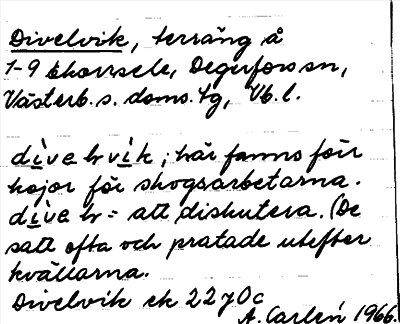 Divelvik, terräng å
1-9 Ekorrsele, Degerfors sn,
Västerb. s. doms. tg, Vb. l.
divelvik; här fanns förr
kojor för skogsarbetarna.
divel = att diskutera. (De
satt ofta och pratade utefter
kvällarna.
Divelvik ek 22 7 0 c
A. Carlén 1966.